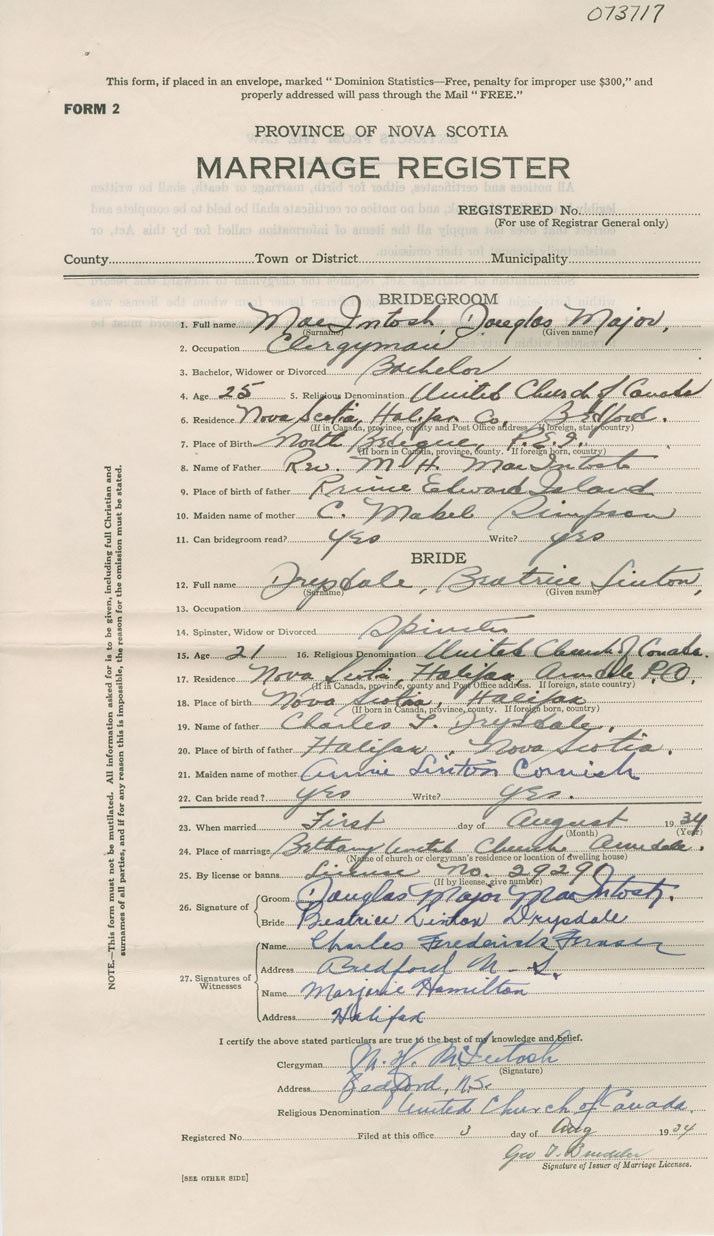 073717
This form, if placed in an envelope, marked "Dominion Statistics—Free, penalty for improper use $300," and
properly addressed will pass through the Mail "FREE."
FORM 2
PROVINCE OF NOVA SCOTIA
MARRIAGE REGISTER
REGISTERED No.
(For use of Registrar General only)
County Town or District Municipality
BRIDEGROOM
1. Full name MacIntosh, Douglas Major,
(Surname) (Given name)
2. Occupation Clergyman
3. Bachelor, Widower or Divorced Bachelor
4. Age 25 5. Religious Denomination United Church of Canada
6. Residence Nova Scotia, Halifax Co., Bedford.
(If in Canada, province, county and Post Office address. If foreign, state country)
7. Place of Birth North Bedeque, P.E.I.
(If born in Canada, province, county. If foreign born, country)
8. Name of Father Rev. M. H. MacIntosh
9. Place of birth of father Prince Edward Island
10. Maiden name of mother C. Mabel Simpson
11. Can bridegroom read? yes Write? yes
BRIDE
12. Full name Drysdale, Beatrice Linton,
(Surname) (Given name)
13. Occupation
14. Spinster, Widow or Divorced Spinster
15. Age 21 16. Religious Denomination United Church of Canada.
17. Residence Nova Scotia, Halifax, Armdale P.O.
(If in Canada, province, county and Post Office address. If foreign, state country)
18. Place of birth Nova Scotia, Halifax
(If born in Canada, province, county. If foreign born, country)
19. Name of father Charles Drysdale,
20. Place of birth of father Halifax, Nova Scotia.
21. Maiden name of mother Annie Linton Cornish
22. Can bride read? yes Write? yes.
23. When married First day of August 1934
(Month) (Year)
24. Place of marriage Bethany United Church Armdale.
(Name of church or clergyman's residence or location of dwelling house)
25. By license or banns License No. 29290
(If by license, give number)
26. Signature of
Groom Douglas Major MacIntosh.
Bride Beatrice Linton Drysdale
27. Signatures of Witnesses
Name Charles Frederick Fraser
Address Bedford N.S.
Name Marjorie Hamilton
Address Halifax
I certify the above stated particulars are true to the best of my knowledge and belief.
Clergyman M. H. McIntosh
(Signature)
Address Bedford, N.S.
Religious Denomination United Church of Canada.
Registered No. Filed at this office 3 day of Aug 1934
Geo
Signature of Issuer of Marriage Licenses.
[SEE OTHER SIDE]
NOTE.—This form must not be mutilated. All information asked for is to be given, including full Christian and
surnames of all parties, and if for any reason this is impossible, the reason for the omission must be stated.